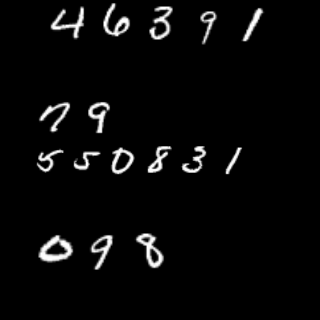 46391
79
550831
098